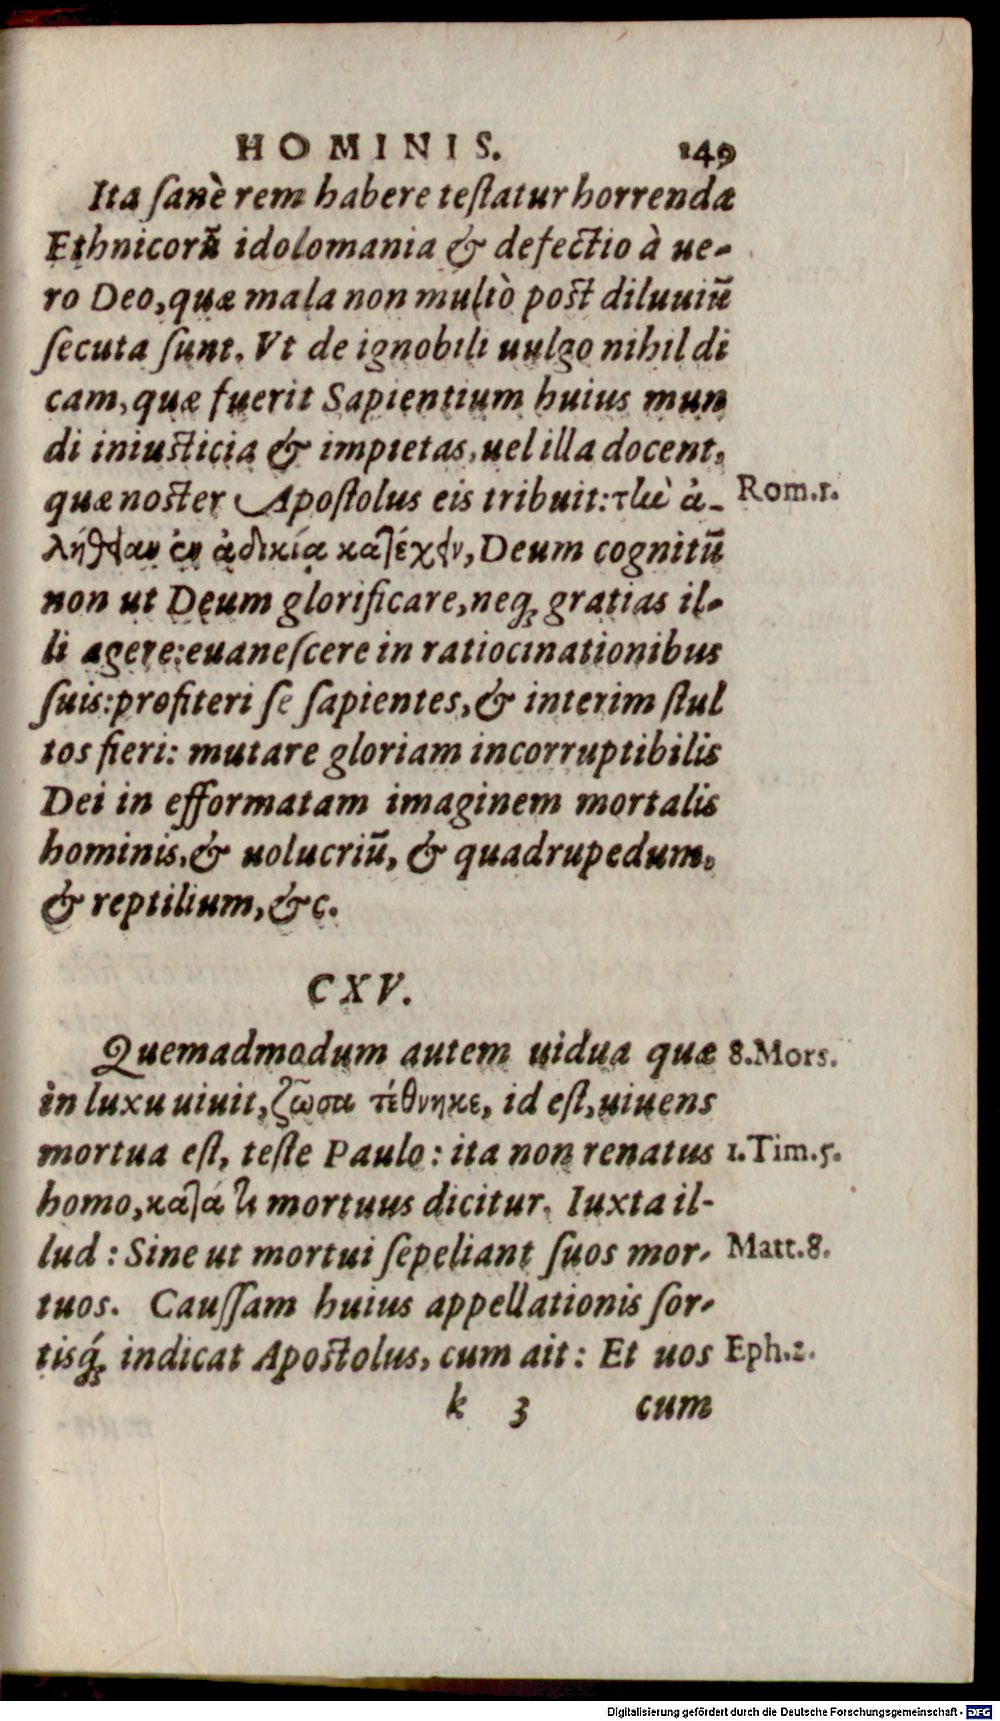 HOMINIS. 149
Ita ſanè rem habere teſtatur horrenda
Ethnicorũ idolomania & defectio à ue-
ro Deo, quæ mala non multò post diluuiũ
ſecuta ſunt. Vt de ignobili uulgo nihil di
cam, quæ fuerit Sapientium huius mun
di iniusticia & impietas, uel illa docent,
quæ noster Apoſtolus eis tribuit: τὴν ἀ-
Rom.1.
λήθειαν ἐν ἀδικίᾳ κατέχειν, Deum cognitũ
non ut Deum glorificare, neq; gratias il-
li agere: euaneſcere in ratiocinationibus
ſuis: profiteri ſe ſapientes, & interim ſtul
tos fieri: mutare gloriam incorruptibilis
Dei in efformatam imaginem mortalis
hominis, & uolucriũ, & quadrupedum,
& reptilium, &c.
CXV.
Quemadmodum autem uidua quæ
8.Mors.
in luxu uiuit, ζῶσα τέθνηκε, id eſt, uiuens
mortua eſt, teſte Paulo: ita non renatus
1.Tim.5.
homo, κατά τι mortuus dicitur. Iuxta il-
lud: Sine ut mortui ſepeliant ſuos mor-
Matt.8.
tuos. Cauſſam huius appellationis ſor-
tisq́; indicat Apostolus, cum ait: Et uos
Eph.2.
k 3 cum
Digitalisierung gefördert durch die Deutsche Forschungsgemeinschaft - DFG